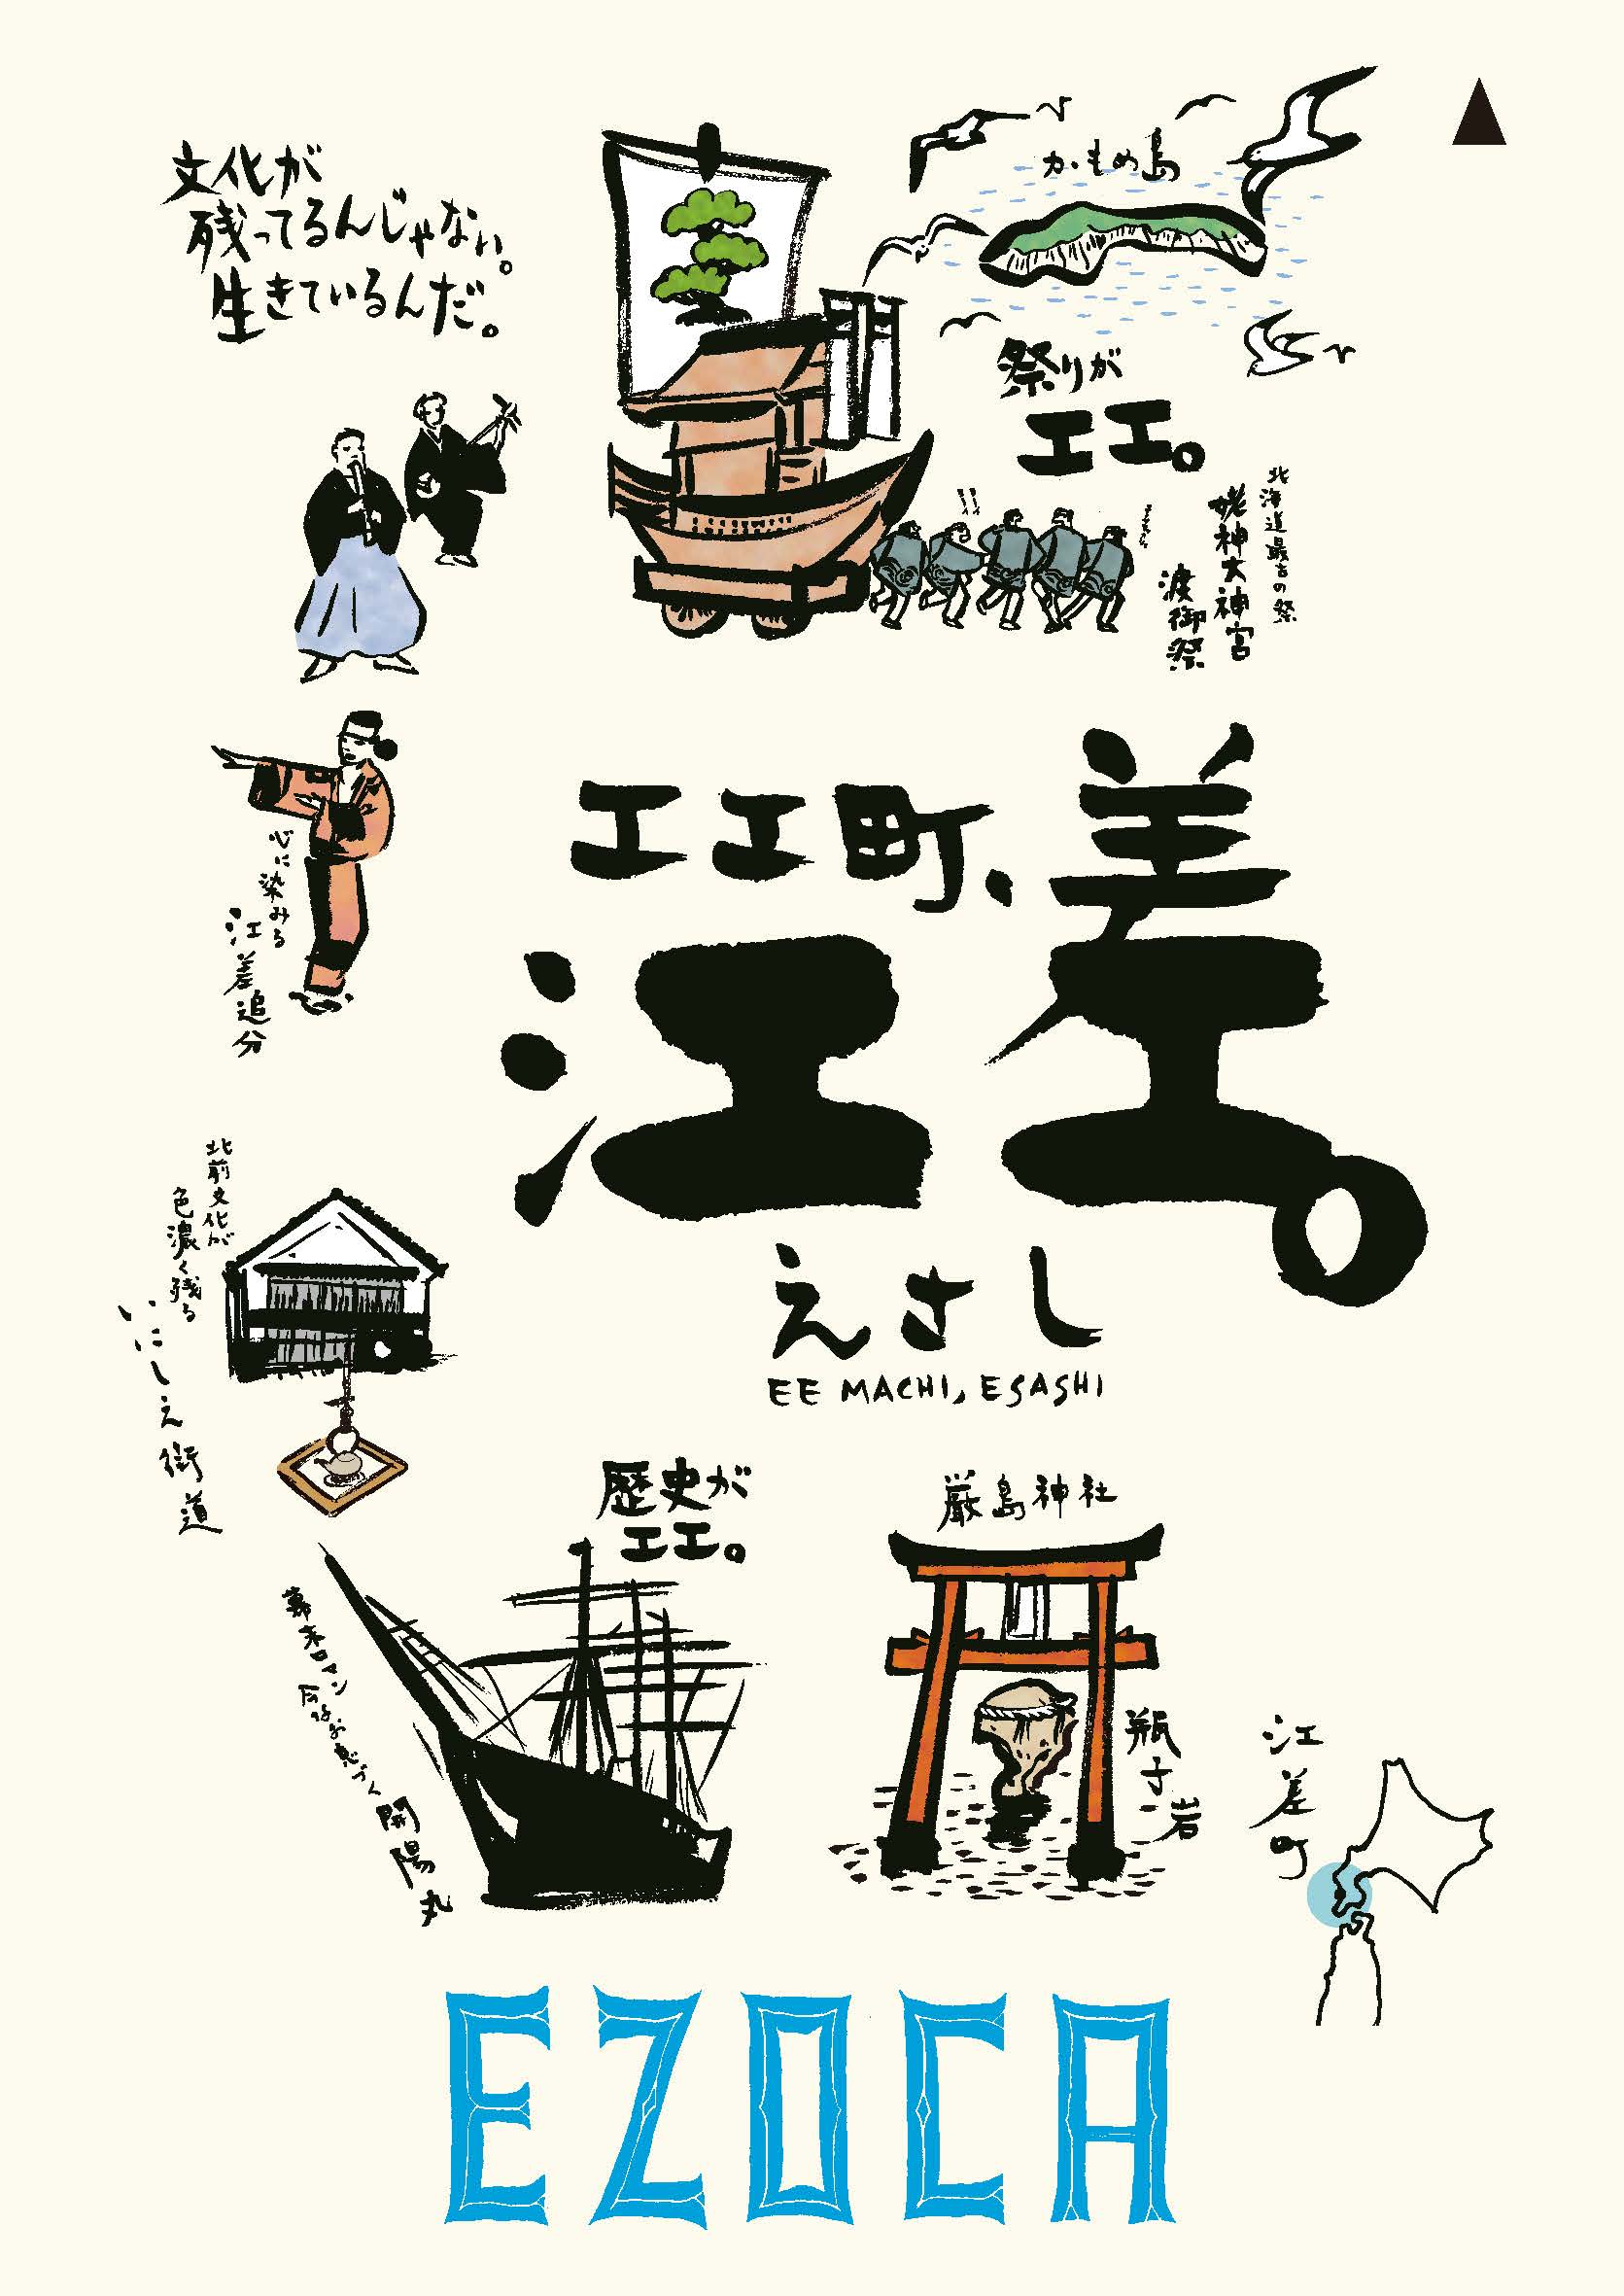 文化が
残ってるんじゃない。
生きているんだ。
かもめ島
祭りが
エエ。
北海道最古の祭
姥神大神宮
渡御祭
心に染みる
江差追分
エエ町、
江差。
えさし
EE MACHI, ESASHI
北前文化が
色濃く残る
いにしえ街道
歴史が
エエ。
幕末ロマン
今なお息づく
開陽丸
厳島神社
瓶子岩
江差町
EZOCA